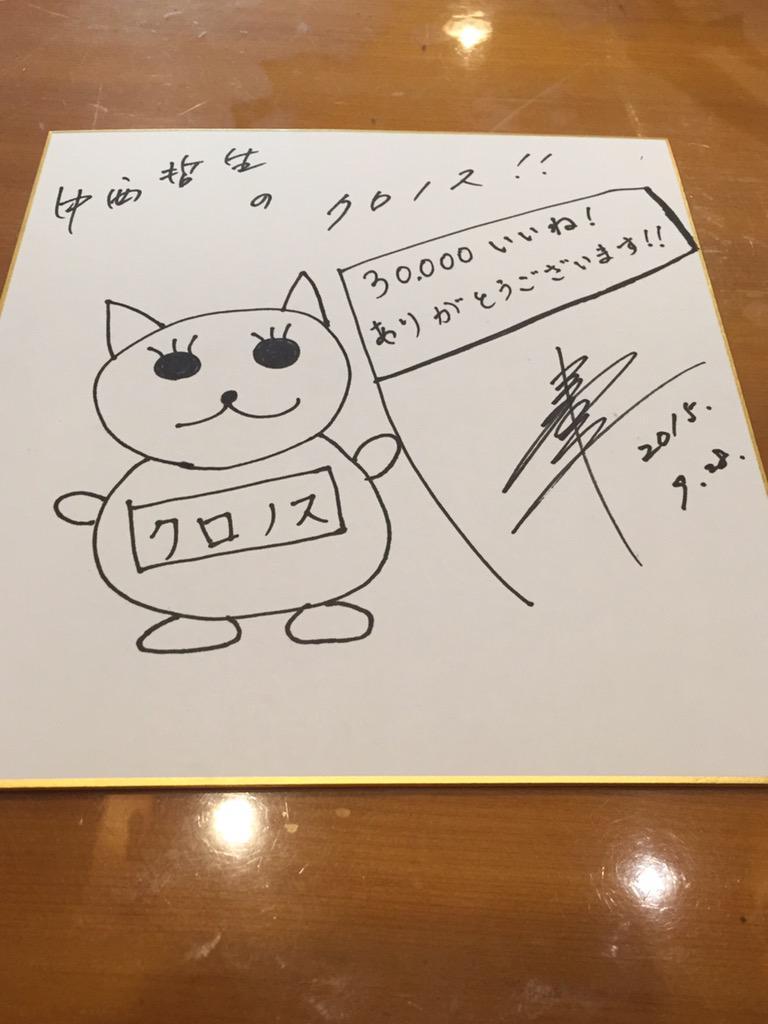 中西哲生
の クロノス!!
30.000 いいね!
ありがとうございます!!
クロノス
2015.
9.28.